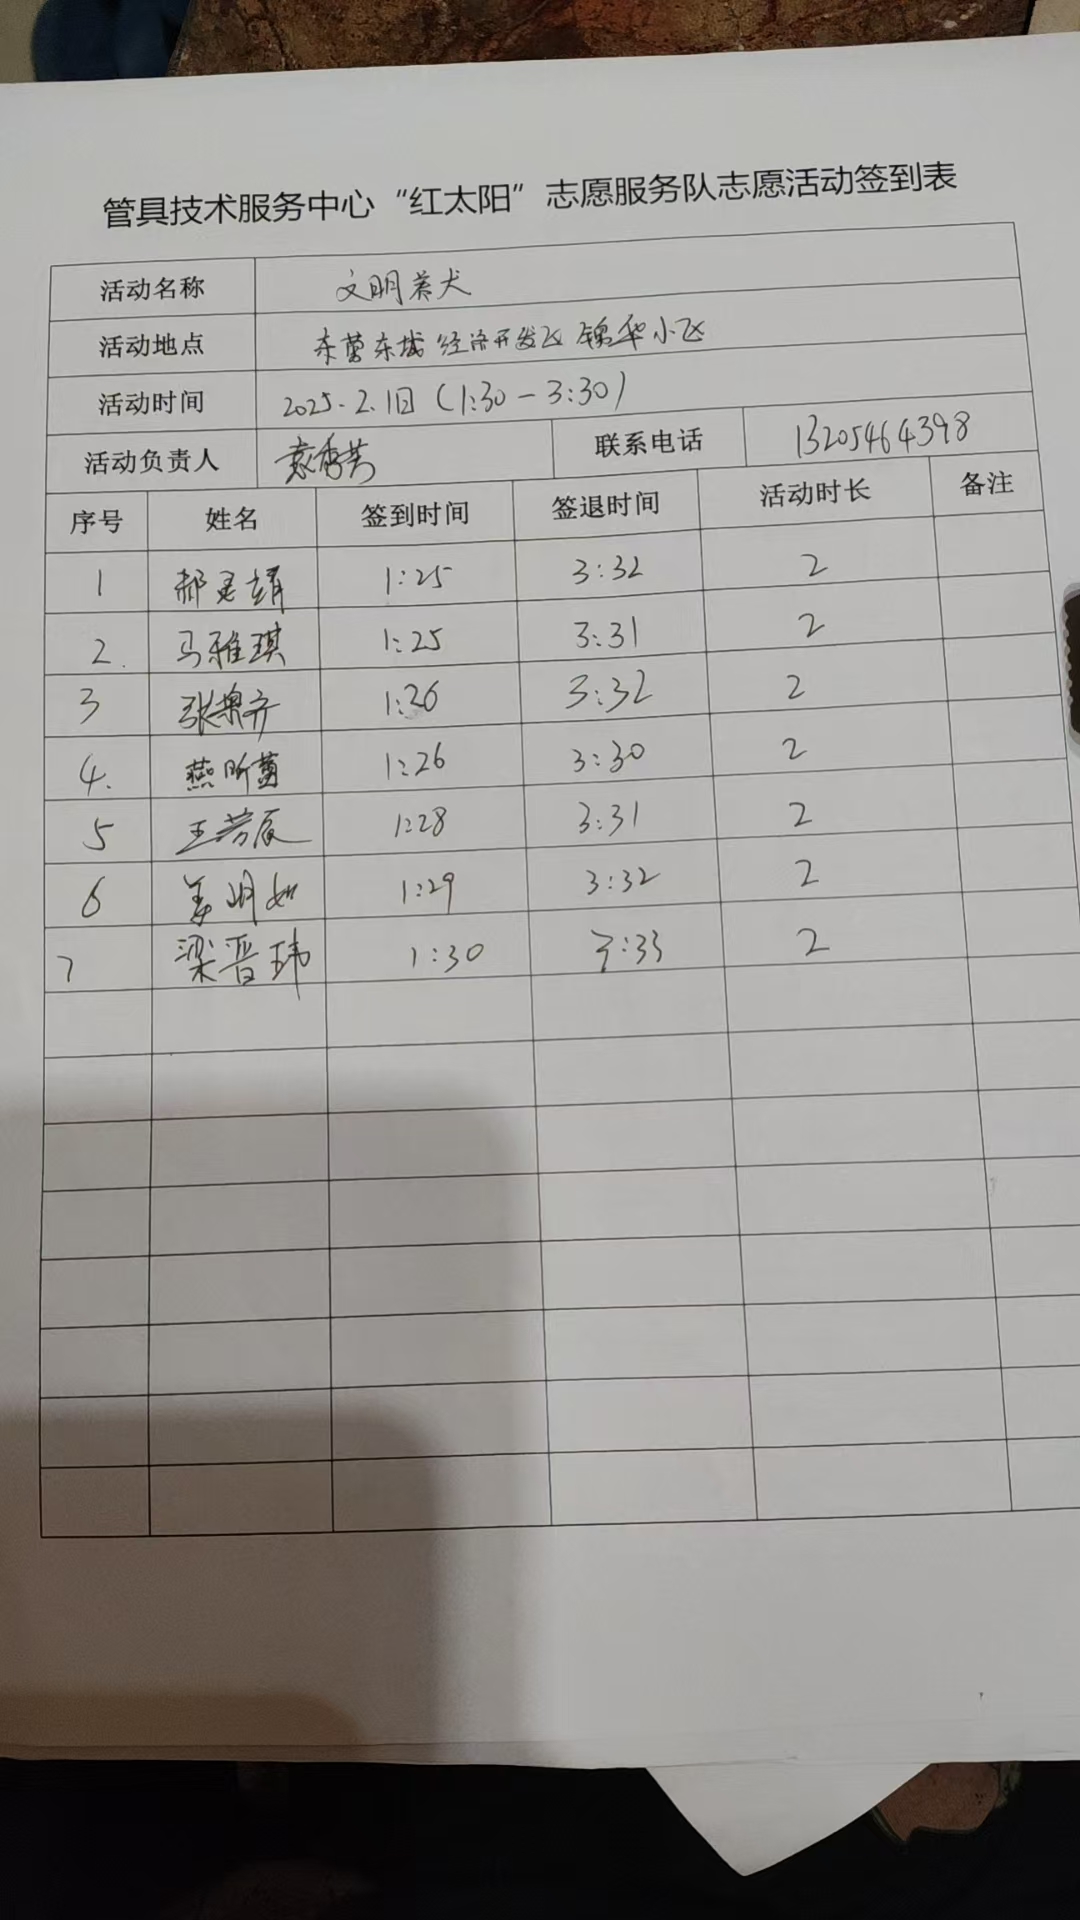 管具技术服务中心“红太阳”志愿服务队志愿活动签到表
活动名称 文明养犬
活动地点 东营东城经济开发区锦华小区
活动时间 2025.2.1日（1:30－3:30）
活动负责人 袁秀芳 联系电话 13205464398
序号 姓名 签到时间 签退时间 活动时长 备注
1 郝灵婧 1:25 3:32 2
2. 马雅琪 1:25 3:31 2
3 张 齐 1:26 3:32 2
4. 燕昕 1:26 3:30 2
5 王芳辰 1:28 3:31 2
6 姜明如 1:29 3:32 2
7 梁晋玮 1:30 3:33 2